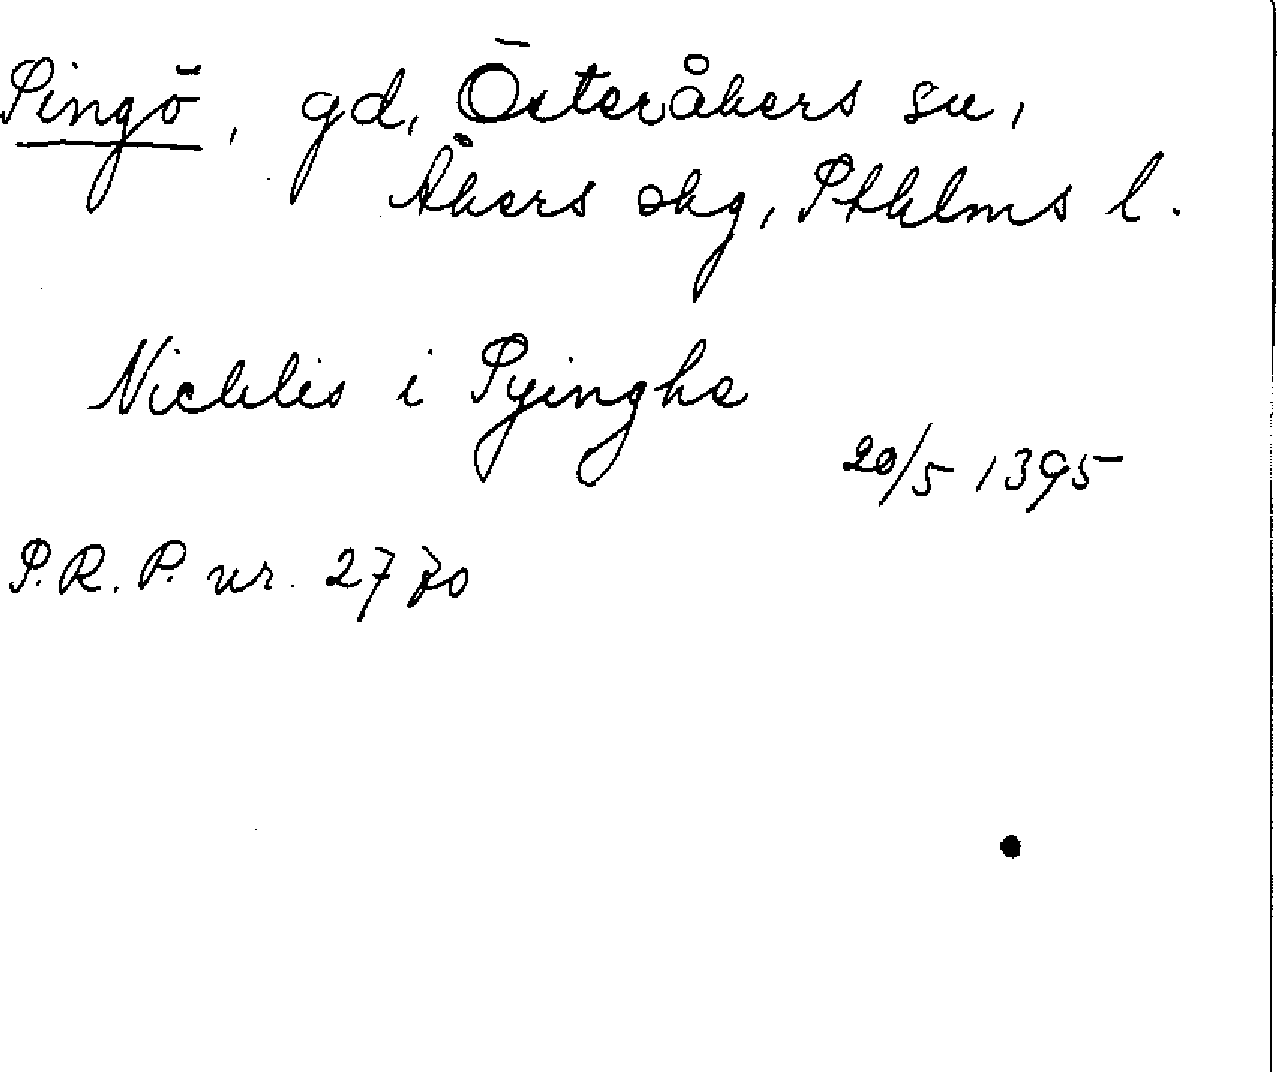 Singö, gd, Österåkers sn,
Åkers skg, Sthlms l.
Nicklis i Syinghe
20/5 1395
S.R.P. nr. 2770